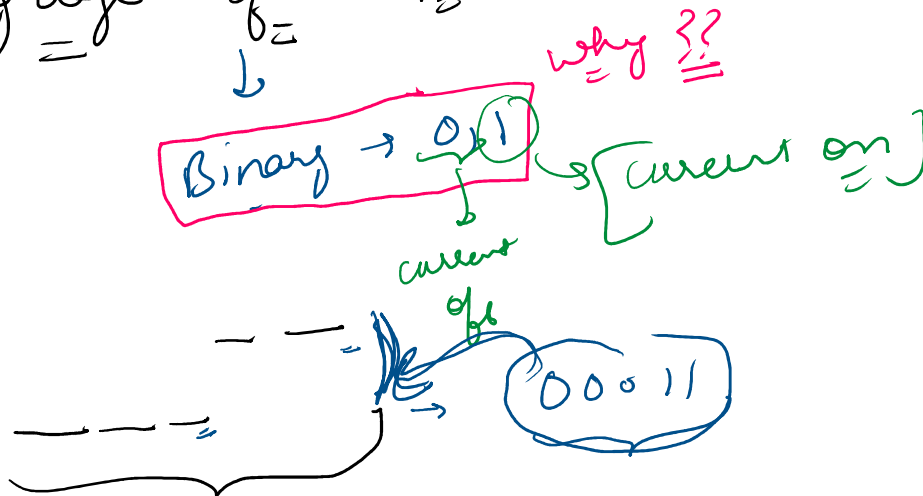 why ??
Binary → 0,1
[current on]
current
off
00011